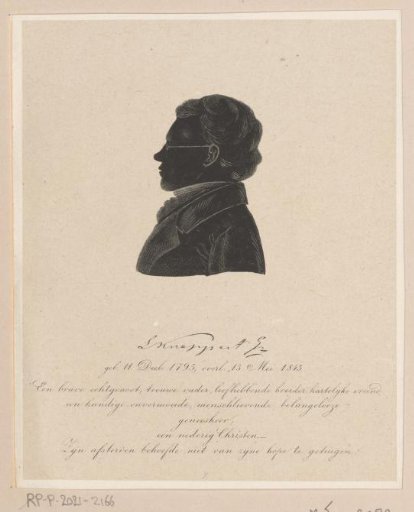 L Knappert Gz
geb. 11 Decb 1795, overl. 13 Mei 1845
Een brave echtgenoot, trouwe vader, liefhebbende broeder, hartelyke vriend
een kundige onvermoeide, menschlievende belangelooze
geneesheer,
een nederig Christen._
Zyn afsterven behoefde niet van zyne hope te getuigen!
RP-P-2021-2166